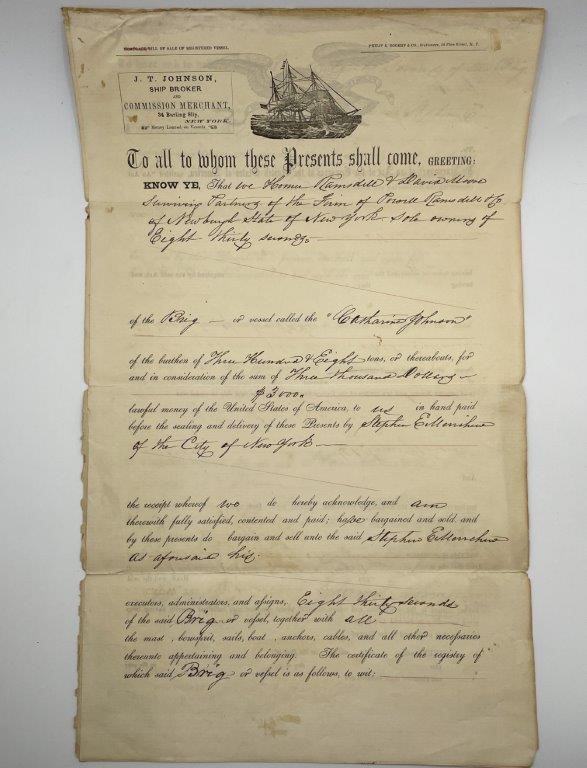 BILL OF SALE OF REGISTERED VESSEL.
J. T. JOHNSON,
SHIP BROKER
AND
COMMISSION MERCHANT,
34 Burling Slip,
NEW YORK.
Money Loaned on Vessels
To all to whom these Presents shall come, GREETING:
KNOW YE, That We Homer Ramsdell & David Moore
Surviving Partners of the Firm of Powell Ramsdell & Co
of Newburgh State of New York Sole owners of
Eight thirty seconds
of the Brig or vessel called the "Catharine Johnson"
of the burthen of Three Hundred & Eight tons, or thereabouts, for
and in consideration of the sum of Three thousand Dollars
$3000
lawful money of the United States of America, to us in hand paid
before the sealing and delivery of these Presents by Stephen E.
of the City of New York
the receipt whereof we do hereby acknowledge, and am
therewith fully satisfied, contented and paid; have bargained and sold, and
by these presents do bargain and sell unto the said Stephen E.
as aforesaid his
executors, administrators, and assigns, Eight thirty seconds
of the said Brig or vessel, together with all
the mast, bowsprit, sails, boat, anchors, cables, and all other necessaries
thereunto appertaining and belonging. The certificate of the registry of
which said Brig or vessel is as follows, to wit: